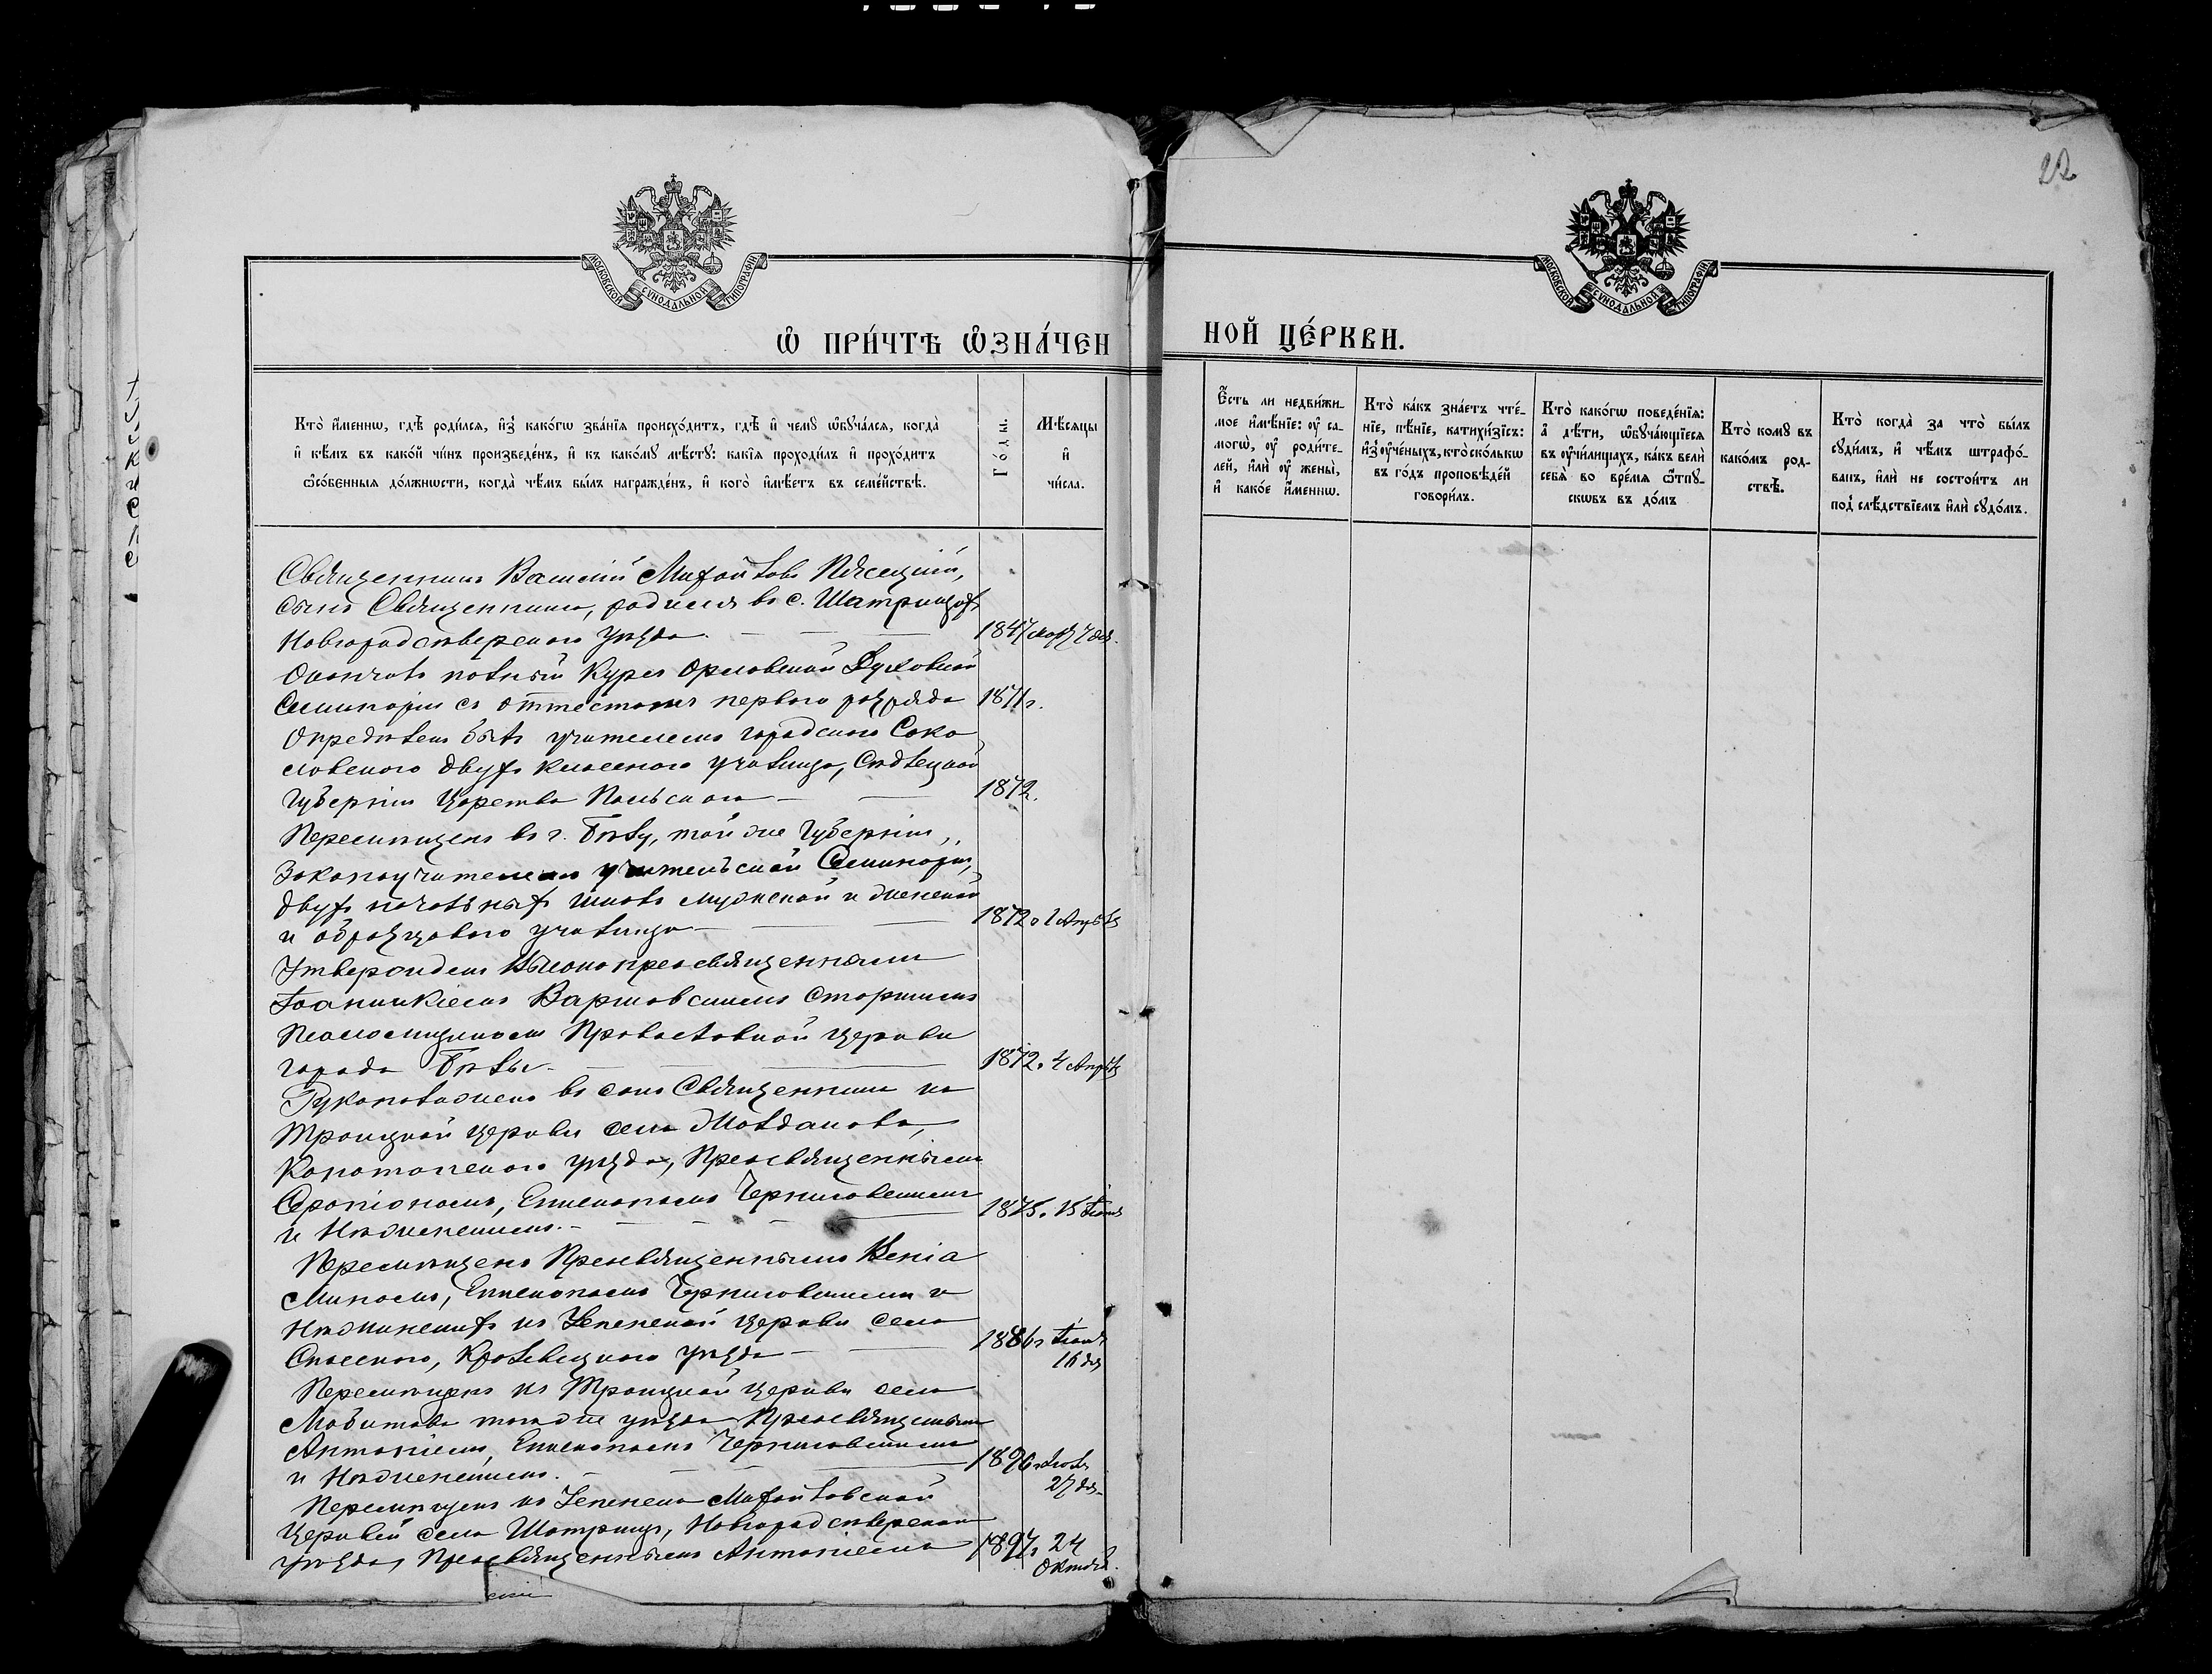 22
МОСКОВСКОЙ СѴНОДАЛЬНОЙ ТИПОГРАФІИ
МОСКОВСКОЙ СѴНОДАЛЬНОЙ ТИПОГРАФІИ
Ѡ ПРИ́ЧТѢ ѠЗНА́ЧЕН
НОЙ ЦЕ́РКВИ.
Кто̀ и҆́меннѡ, гдѣ̀ роди́лсѧ, и҆з̾ како́гѡ зва́нїѧ происхо́дитъ, гдѣ̀ и҆ чемꙋ̀ ѡ҆бꙋча́лсѧ, когда̀
и҆ кѣ́мъ въ како́й чи́нъ произведе́нъ, и҆ къ како́мꙋ мѣ́стꙋ: какі̑ѧ проходи́лъ и҆ прохо́дитъ
ѻ҆со́бєнныѧ до́лжнѡсти, когда̀ чѣ́мъ бы́лъ награжде́нъ, и҆ кого̀ и҆мѣ́етъ въ семе́йствѣ.
Го́ды.
Мѣ́сѧцы
и҆
чи́сла.
Є҆́сть ли недви́жи-
мое и҆мѣ́нїе: оу҆ са-
могѡ̀, оу҆ роди́те-
лей, и҆лѝ оу҆ жены̀,
и҆ како́е и҆́меннѡ.
Кто̀ ка́къ зна́етъ чте́-
нїе, пѣ́нїе, катихи́зїсъ:
и҆з̾ оу҆че́ныхъ, кто̀ ско́лькѡ
въ го́дъ проповѣ́дей
говори́лъ.
Кто̀ како́гѡ поведе́нїѧ:
а҆ дѣ́ти, ѡ҆бꙋча́ющїесѧ
въ оу҆чи́лищахъ, ка́къ велѝ
себѧ̀ во вре́мѧ ѿпꙋ-
скѡвъ въ до́мъ
Кто̀ комꙋ̀ въ
како́мъ род-
ствѣ̀.
Кто̀ когда̀ за что̀ бы́лъ
сꙋди́мъ, и҆ чѣ́мъ штрафо́-
ванъ, и҆лѝ не состои́тъ ли
под̾ слѣ́дствїемъ и҆лѝ сꙋдо́мъ.
Священникъ Василій Михайловъ Пясецкій,
сынъ Священника, родился въ с. Шатрищахъ
Новгородсѣверскаго уѣзда. 1847
Окончилъ полный курсъ Орловской Духовной
Семинаріи съ аттестатомъ перваго разряда 1871г.
Опредѣленъ былъ учителемъ городскаго Соко
ловскаго двухъ класснаго училища, Сѣдлецкой
Губерніи Царства Польскаго 1872.
Перемѣщенъ въ г. Бѣлу, той же Губерніи,
Законоучителемъ учительской Семинаріи,
двухъ начальныхъ школъ мужской и женской
и образцоваго училища 1872г 1 Апрѣля
Утвержденъ Высокопреосвященнымъ
Іоанникіемъ Варшавскимъ старшимъ
Псаломщикомъ Православной Церкви
города Бѣлы. 1872. 4 Апрѣля
Рукоположенъ въ санъ Священника къ
Троицкой Церкви села
Конотопскаго уѣзда, Преосвященнымъ
Серапіономъ, Епископомъ Черниговскимъ
и Нѣжинскимъ. 1875. 15
Перемѣщенъ Преосвященнымъ Веніа
миномъ, Епископомъ Черниговскимъ и
Нѣжинскимъ къ Успенской Церкви села
Спасскаго, Кролевецкаго уѣзда 1886г
16 дня
Перемѣщенъ къ Троицкой Церкви села
тогоже уѣзда Преосвященнымъ
Антоніемъ, Епископомъ Черниговскимъ
и Нѣжинскимъ. 1896г
27 дня
Перемѣщенъ къ Успенско Михайловской
Церкви села Шатрищъ, Новгородсѣверскаго
уѣзда, Преосвященнымъ Антоніемъ 1897г 24
Октября.